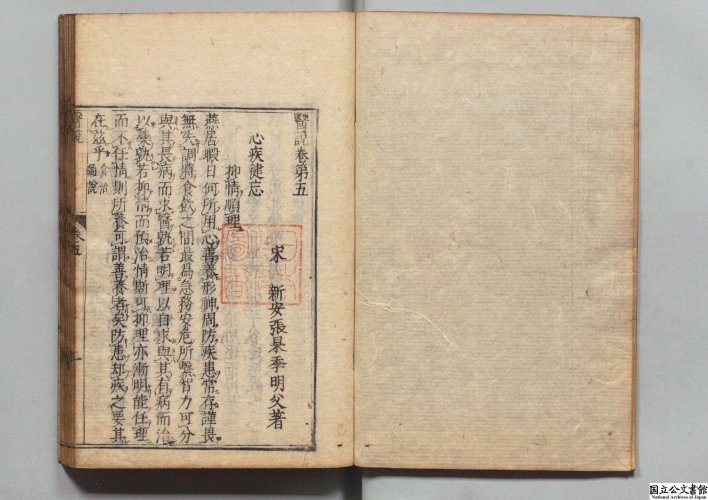 醫說卷第五
宋 新安張杲季明父著
心疾健忘
抑情順理
燕居暇日何所用心善養形神周防疾患常存謹畏
無失調將食飲之間最為急務安危所繫智力可分
與其長病而求醫孰若明理以自求與其有病而治
以藥孰若抑情而預治情斯可抑理亦漸明能任理
而不任情則所養可謂善養者矣防患却疾之要其
在茲乎食治通說
醫說
卷五
国立公文書館
National Archives of Japan